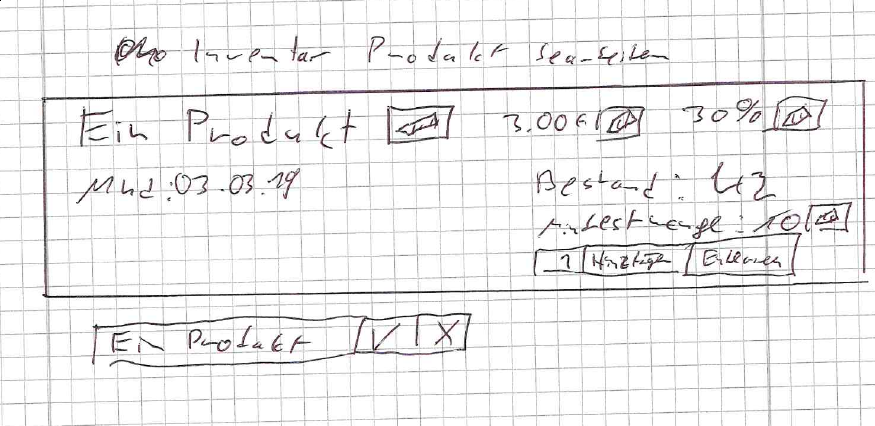 Inventar Produkt Bearbeiten
Ein Produkt 3.00€ 30%
Mhd: 03.03.19 Bestand: 42
Mindestmenge: 10
1 Hinzufügen Entfernen
Ein Produkt ✓ X